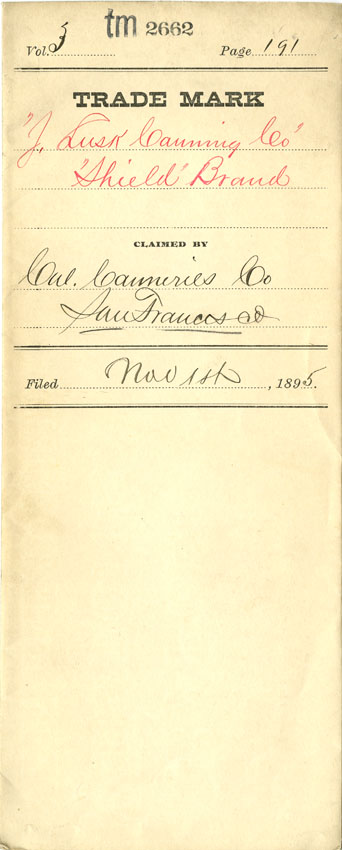 tm 2662
Vol. 3 Page 191
TRADE MARK
"J. Lusk Canning Co"
"Shield" Brand
CLAIMED BY
Cal. Canneries Co
San Francisco
Filed Nov 1st, 1895.